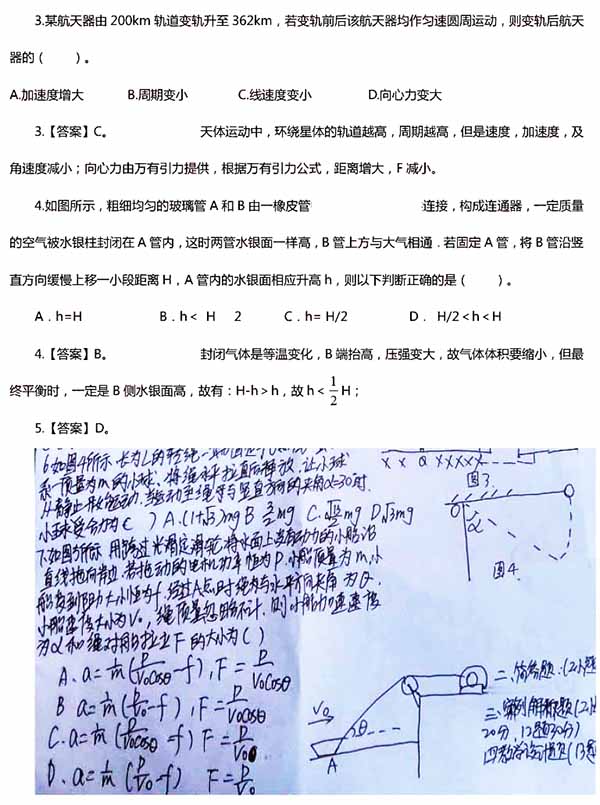 3.某航天器由 200km 轨道变轨升至 362km，若变轨前后该航天器均作匀速圆周运动，则变轨后航天
器的（    ）。
A.加速度增大 B.周期变小 C.线速度变小 D.向心力变大
3.【答案】C。 天体运动中，环绕星体的轨道越高，周期越高，但是速度，加速度，及
角速度减小；向心力由万有引力提供，根据万有引力公式，距离增大，F 减小。
4.如图所示，粗细均匀的玻璃管 A 和 B 由一橡皮管 连接，构成连通器，一定质量
的空气被水银柱封闭在 A 管内，这时两管水银面一样高，B 管上方与大气相通．若固定 A 管，将 B 管沿竖
直方向缓慢上移一小段距离 H，A 管内的水银面相应升高 h，则以下判断正确的是（    ）。
A．h=H B．h< H 2 C．h= H/2 D． H/2<h<H
4.【答案】B。 封闭气体是等温变化，B 端抬高，压强变大，故气体体积要缩小，但最
终平衡时，一定是 B 侧水银面高，故有：H-h>h，故 h<1/2H；
5.【答案】D。
6.如图4所示，长为L的轻绳一
系一质量为m的小球，将绳水平拉直后释放，让小球
从静止开始运动，当运动至绳子与竖直方向的夹角α=30°时，
小球受合力为（ ） A.(1+√3)mg B 3/2mg C. mg D √3mg
7.如图5所示，用跨过光滑定滑轮将水面上失去动力的小船沿
直线拖向岸边，若拖动的电机功率恒为P，小船质量为m，小
船受到阻力大小恒为f，经过A点时绳与水平方向夹角为θ，
小船速度大小为V₀，绳质量忽略不计，则小船加速度
为a和绳对船的拉力F的大小为（ ）
A、a=1/m(P/V₀cosθ-f)，F=P/V₀cosθ
B a=1/m(P/V₀-f)，F=P/V₀cosθ
C.a=1/m(P/V₀cosθ-f) F=P/V₀
D、a=1/m(P/V₀-f) F=P/V₀
X X a XXXXX
图3.
O
α
图4
V₀
θ
A
二、简答题.(2小题
20分，12题30分)